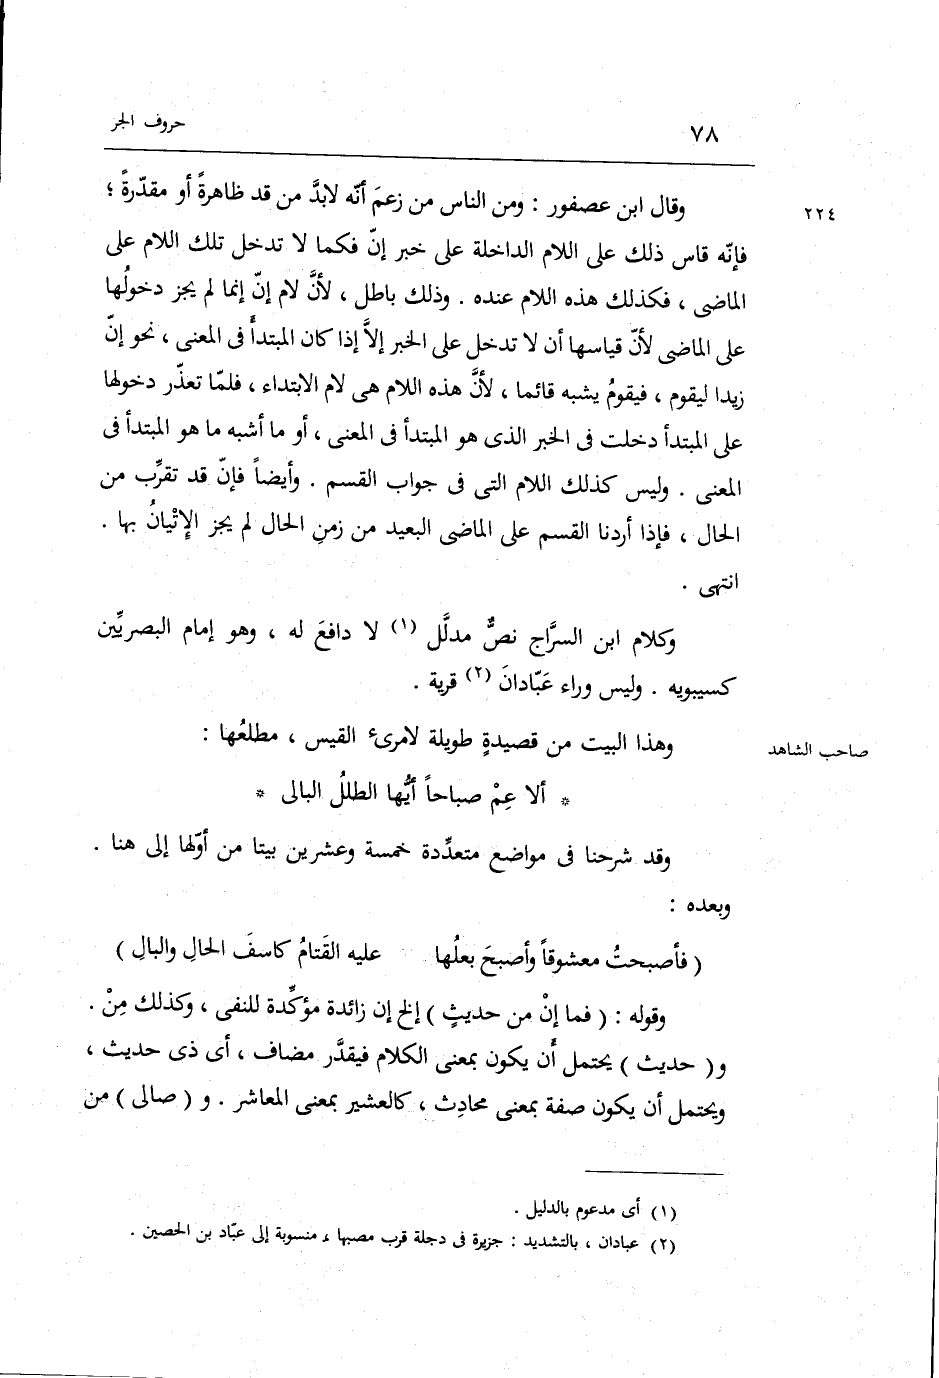 ٧٨ حروف الجر
٢٢٤ وقال ابن عصفور : ومن الناس من زعمَ أنّه لابدَّ من قد ظاهرةً أو مقدّرةً ؛
فإنّه قاس ذلك على اللام الداخلة على خبر إنّ فكما لا تدخل تلك اللام على
الماضى ، فكذلك هذه اللام عنده . وذلك باطل ، لأنَّ لام إنّ إنما لم يجز دخولُها
على الماضى لأنّ قياسها أن لا تدخل على الخبر إلاَّ إذا كان المبتدأَ فى المعنى ، نحو إنّ
زيدا ليقوم ، فيقومُ يشبه قائما ، لأنَّ هذه اللام هى لام الابتداء ، فلمّا تعذّر دخولها
على المبتدأ دخلت فى الخبر الذى هو المبتدأ فى المعنى ، أو ما أشبه ما هو المبتدأ فى
المعنى . وليس كذلك اللام التى فى جواب القسم . وأيضاً فإنّ قد تقرِّب من
الحال ، فإذا أردنا القسم على الماضى البعيد من زمنِ الحال لم يجز الإِتْيانُ بها .
انتهى .
وكلام ابن السرَّاج نصٌّ مدلَّل (١) لا دافعَ له ، وهو إمام البصريِّين
كسيبويه . وليس وراء عَبّادانَ (٢) قرية .
صاحب الشاهد وهذا البيت من قصيدةٍ طويلة لامرىء القيس ، مطلعُها :
* ألا عِمْ صباحاً أيُّها الطللُ البالى *
وقد شرحنا فى مواضع متعدِّدة خمسة وعشرين بيتا من أوّلها إلى هنا .
وبعده :
( فأصبحتُ معشوقاً وأصبحَ بعلُها عليه القَتامُ كاسفَ الحالِ والبالِ )
وقوله : ( فما إنْ من حديثٍ ) إلخ إن زائدة مؤكِّدة للنفى ، وكذلك مِنْ .
و( حديث ) يحتمل أَن يكون بمعنى الكلام فيقدَّر مضاف ، أى ذى حديث ،
ويحتمل أن يكون صفة بمعنى محادِث ، كالعشير بمعنى المعاشر . و ( صالى ) من
(١) أى مدعوم بالدليل .
(٢) عبادان ، بالتشديد : جزيرة فى دجلة قرب مصبها ، منسوبة إلى عبّاد بن الحصين .